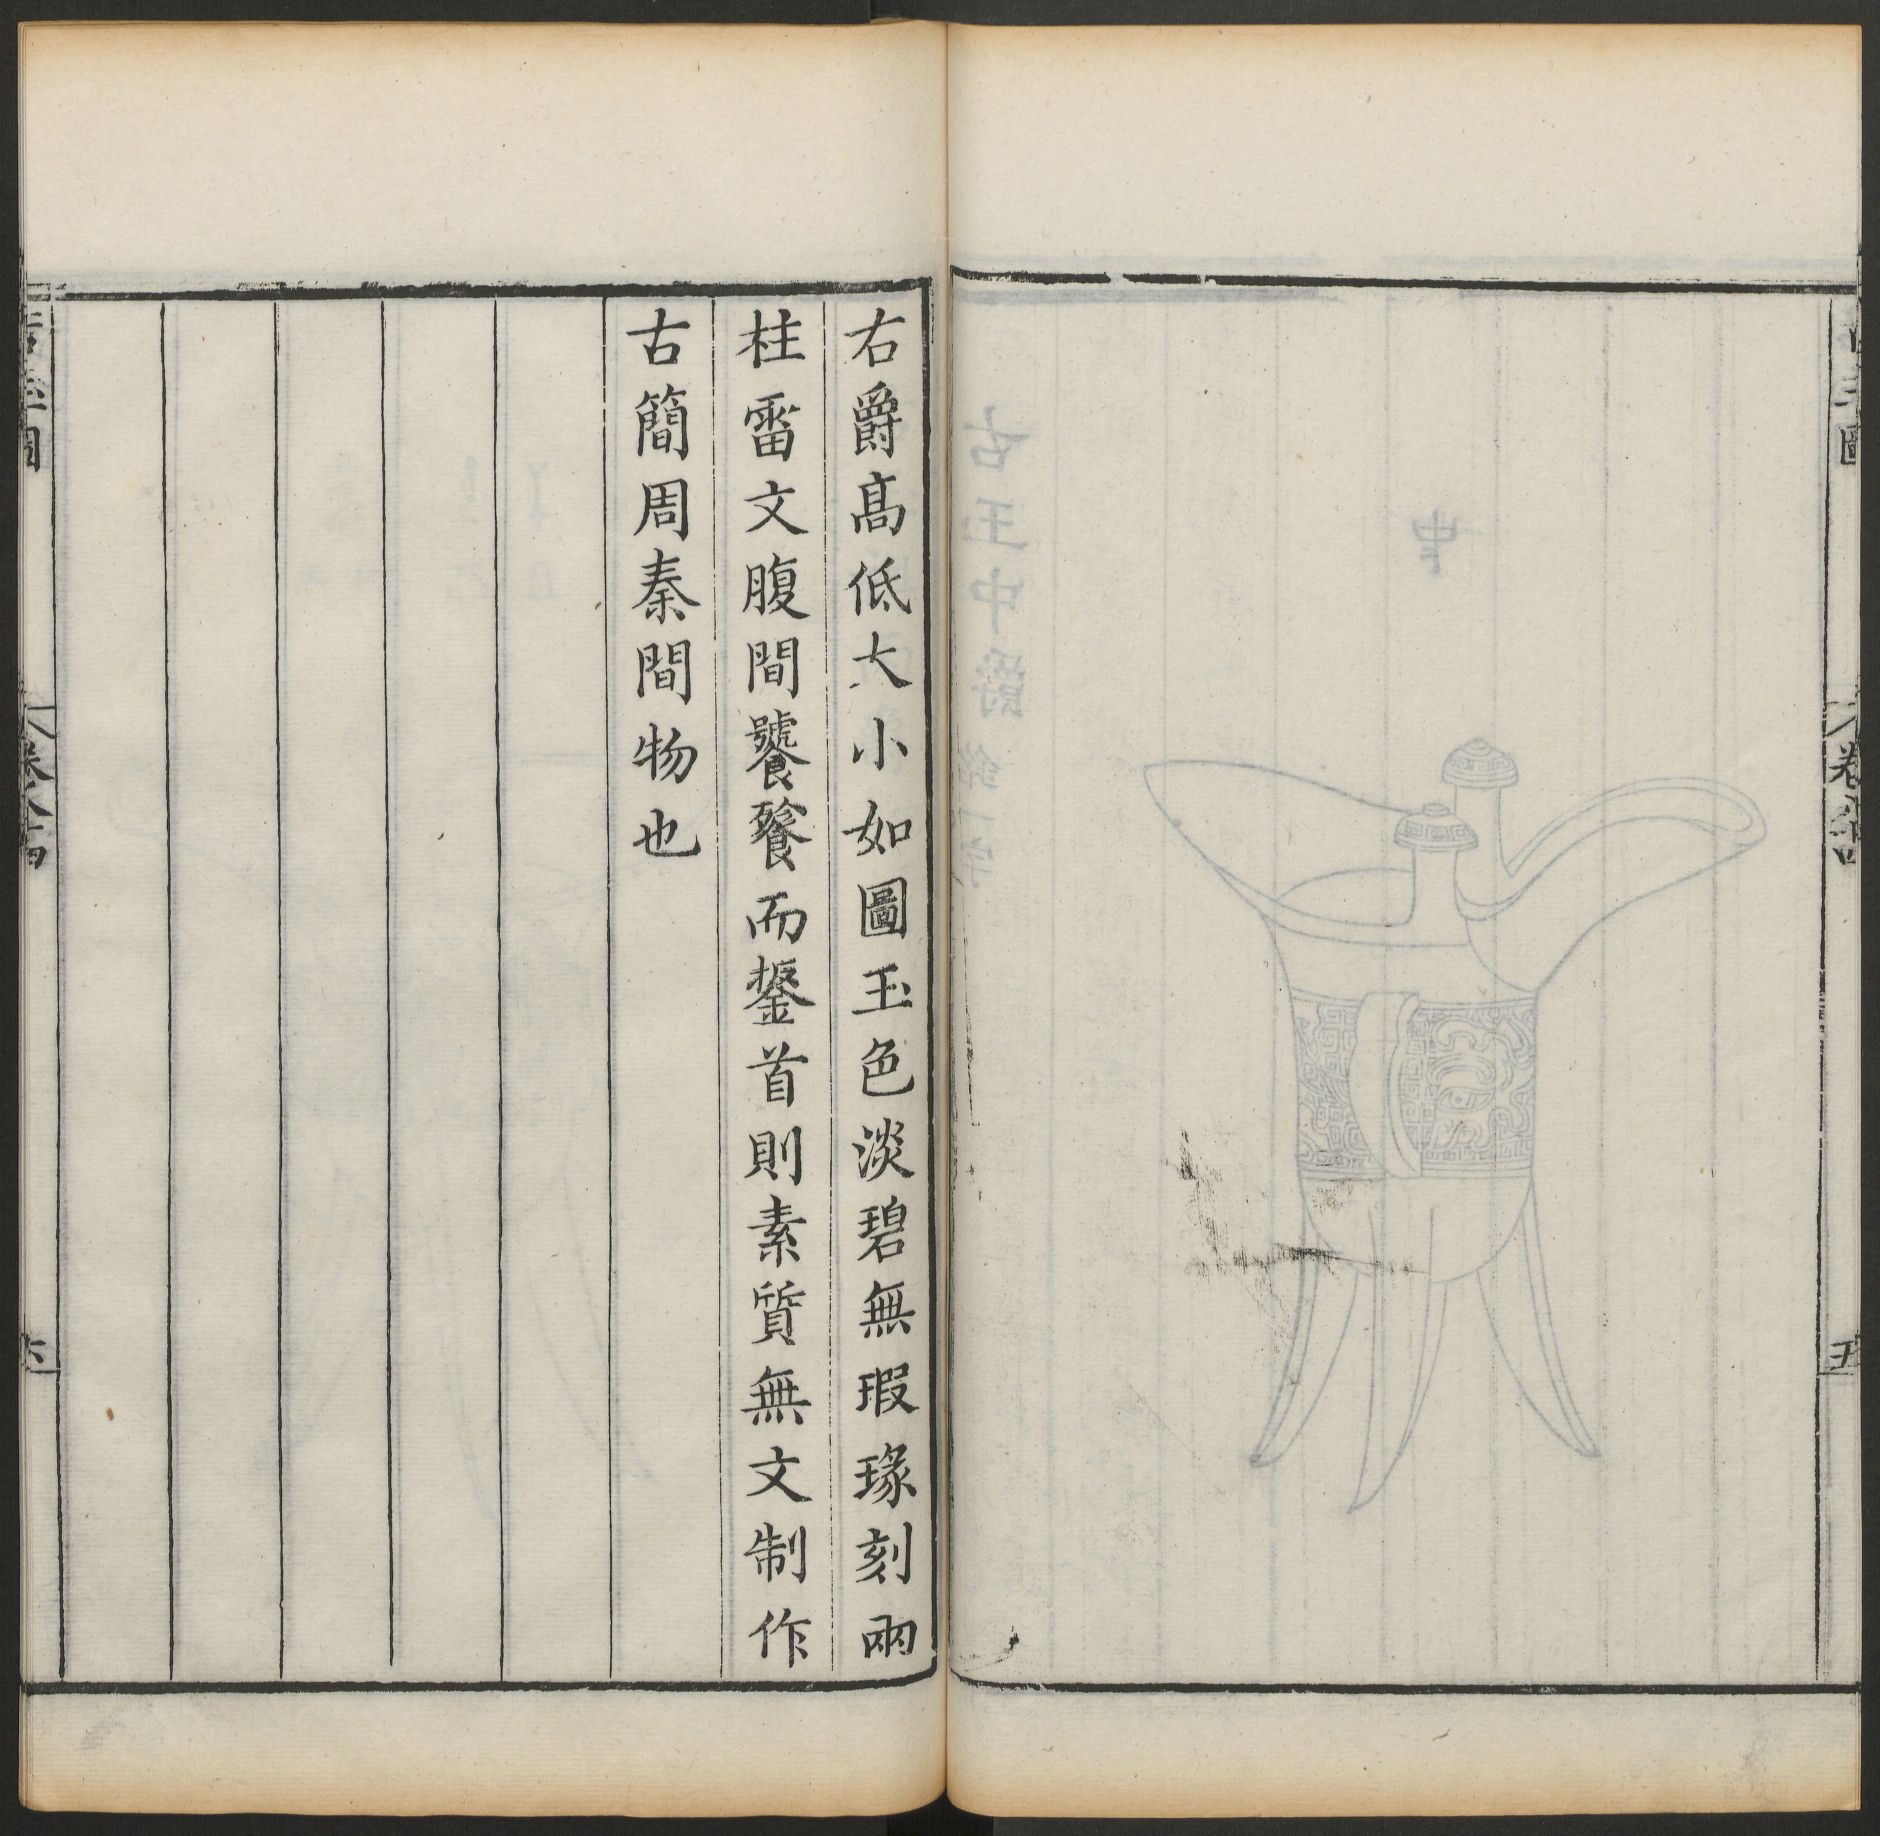 古玉圖
五
右爵髙低大小如圖玉色淡碧無瑕瑑刻兩
柱雷文腹間饕餮而鋬首則素質無文制作
古簡周秦間物也
古玉圖